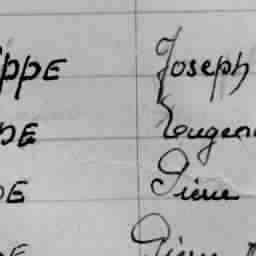 ppe Joseph
pe Eugen
e Pierre
e Pierre